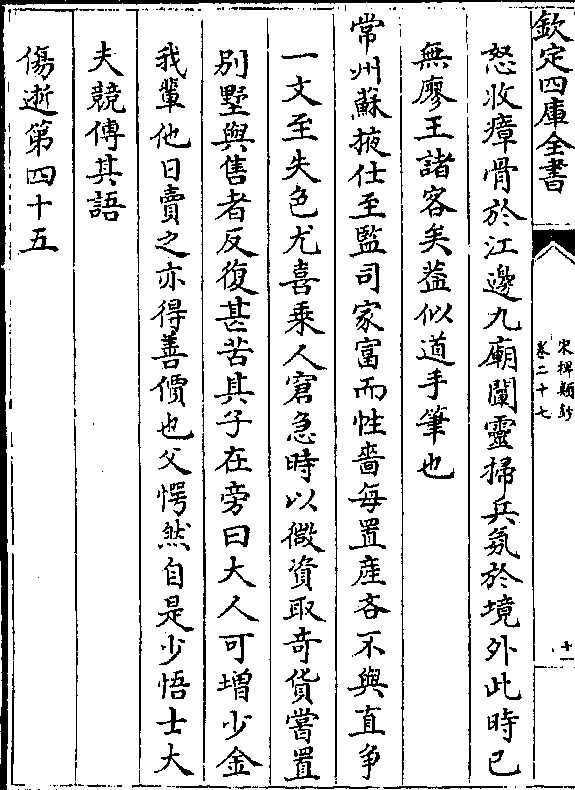 欽定四庫全書
宋稗類鈔
卷二十七
十一
怒收瘴骨於江邊九廟闡靈掃兵氛於境外此時已
無廖王諸客矣葢似道手筆也
常州蘇掖仕至監司家富而性嗇每置產吝不與直爭
一文至失色尤喜乘人窘急時以微資取奇貨嘗置
別墅與售者反復甚苦其子在旁曰大人可增少金
我輩他日賣之亦得善價也父愕然自是少悟士大
夫競傳其語
傷逝第四十五